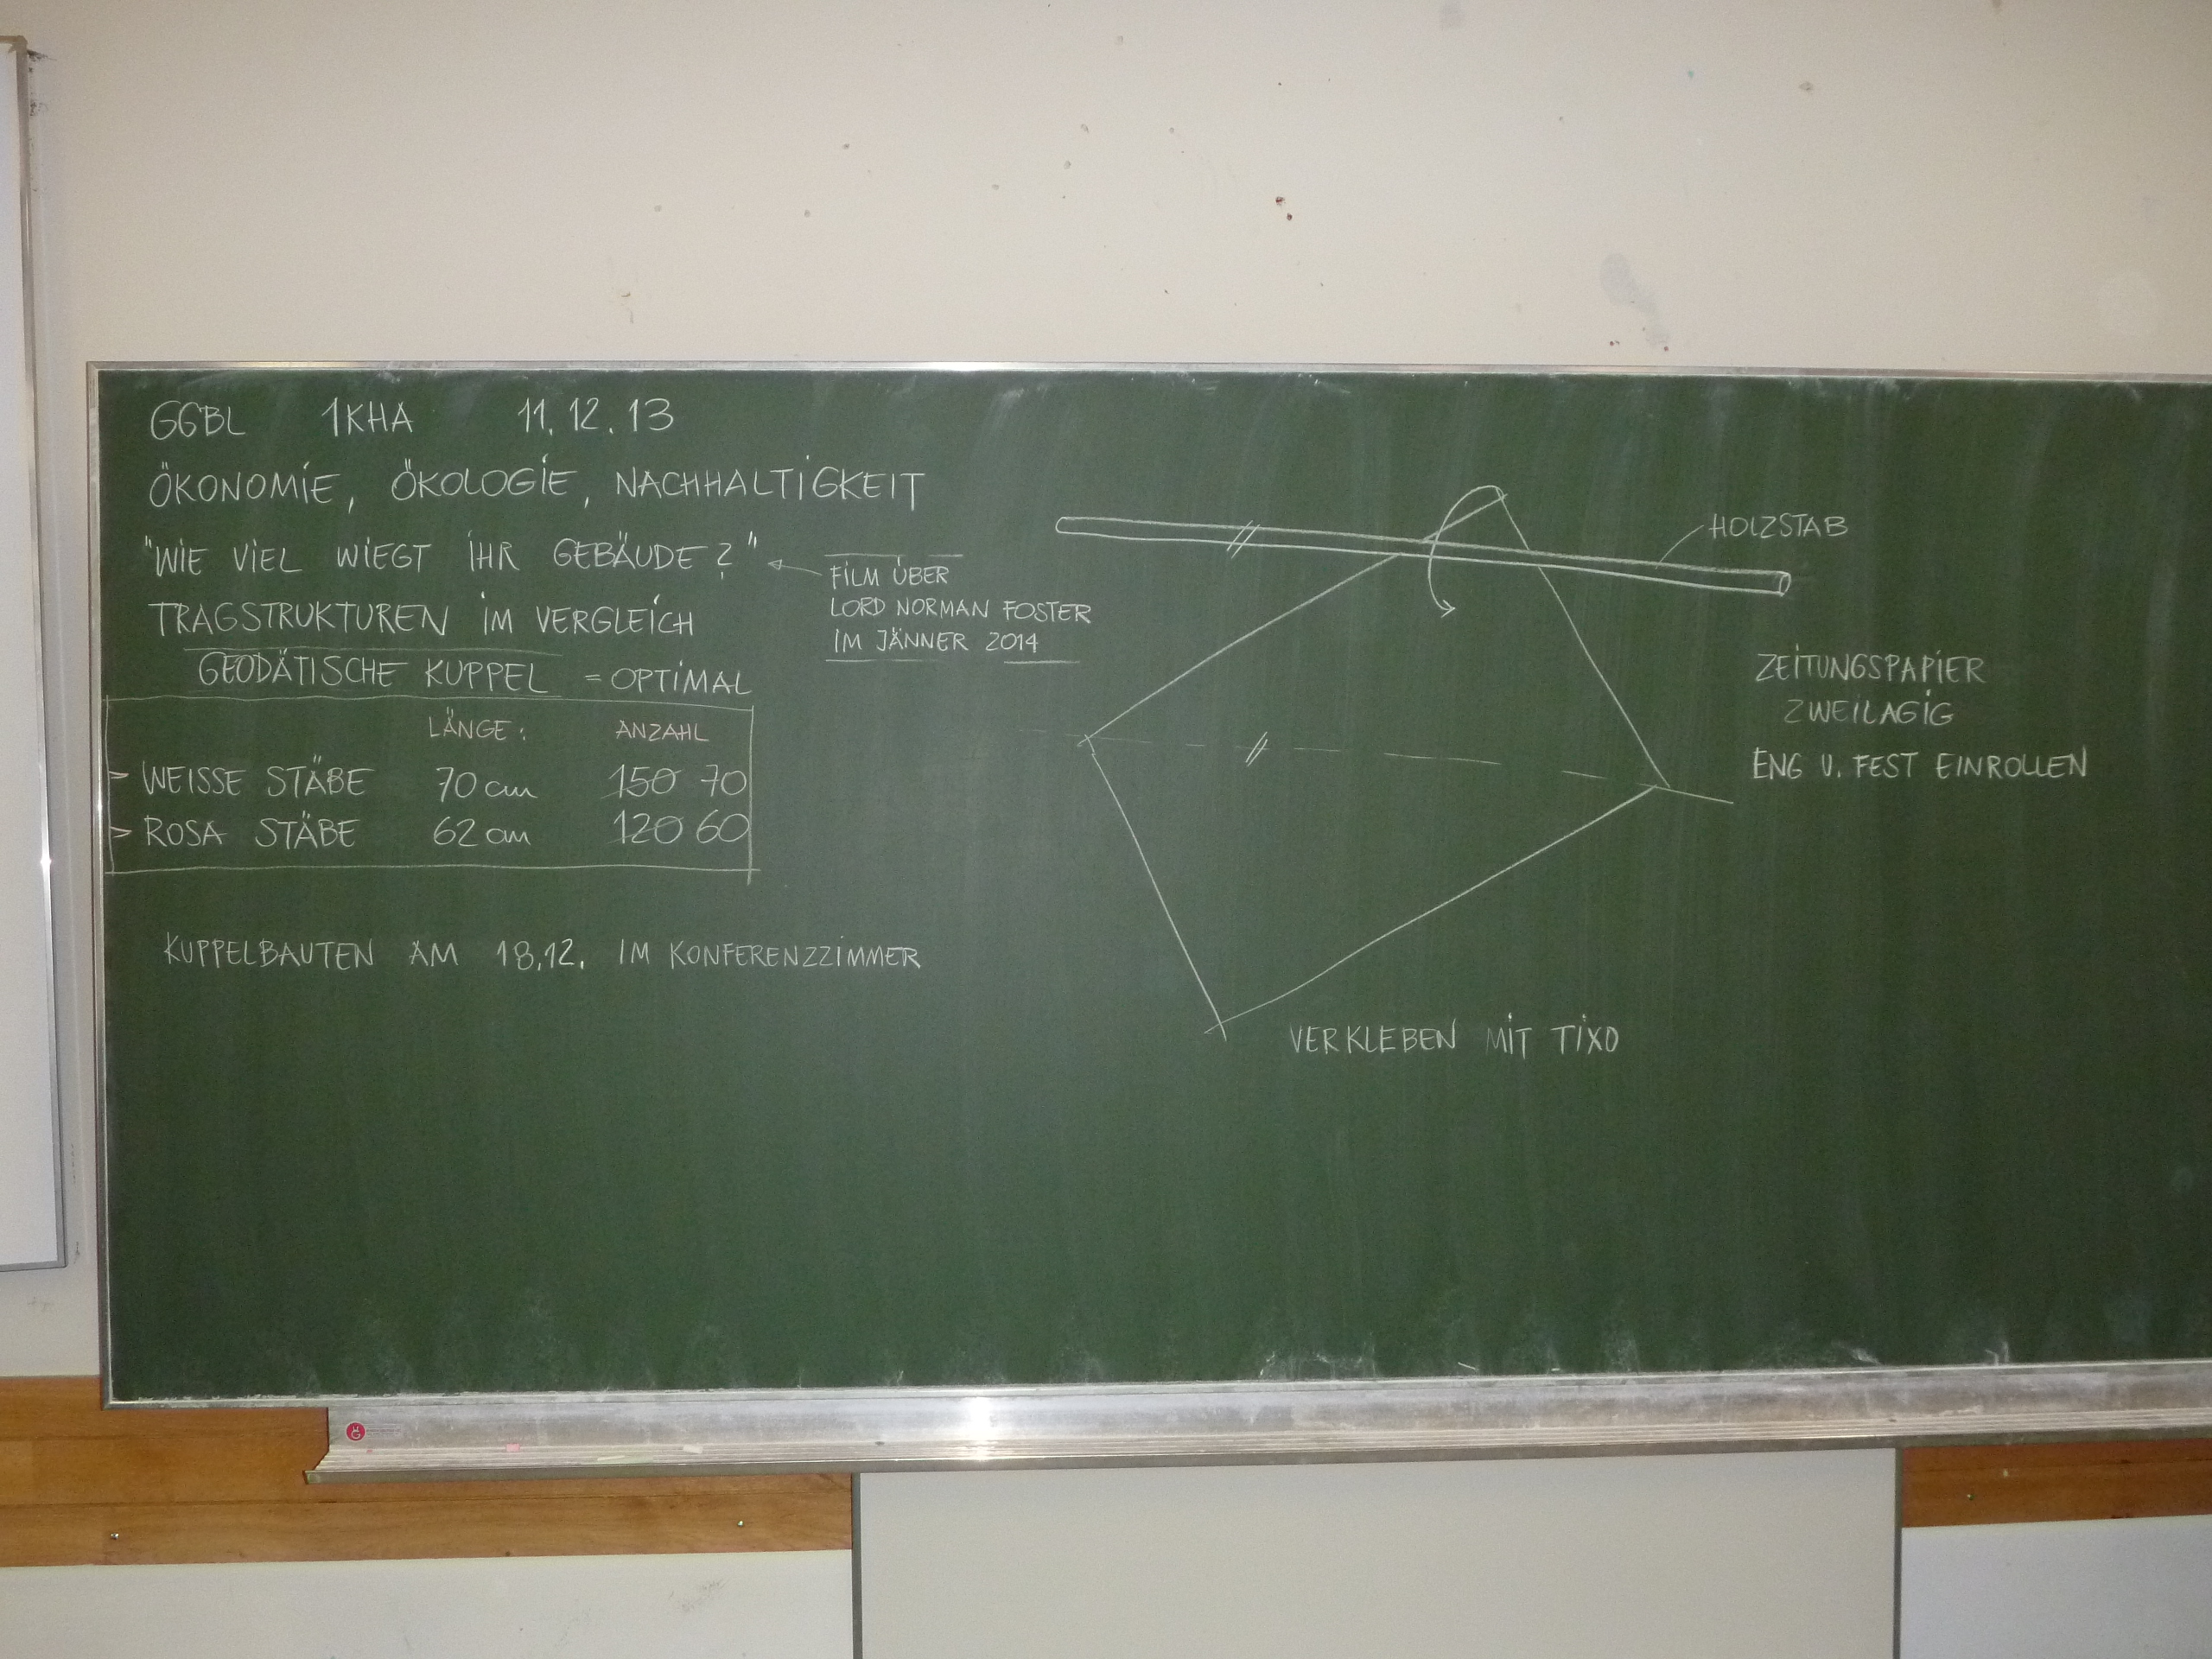 GGBL 1KHA 11.12.13
ÖKONOMIE, ÖKOLOGIE, NACHHALTIGKEIT
"WIE VIEL WIEGT IHR GEBÄUDE?"
FILM ÜBER
LORD NORMAN FOSTER
IM JÄNNER 2014
TRAGSTRUKTUREN IM VERGLEICH
GEODÄTISCHE KUPPEL = OPTIMAL
LÄNGE: ANZAHL
WEISSE STÄBE 70 cm 150 70
ROSA STÄBE 62 cm 120 60
KUPPELBAUTEN AM 18.12. IM KONFERENZZIMMER
HOLZSTAB
ZEITUNGSPAPIER
ZWEILAGIG
ENG U. FEST EINROLLEN
VERKLEBEN MIT TIXO